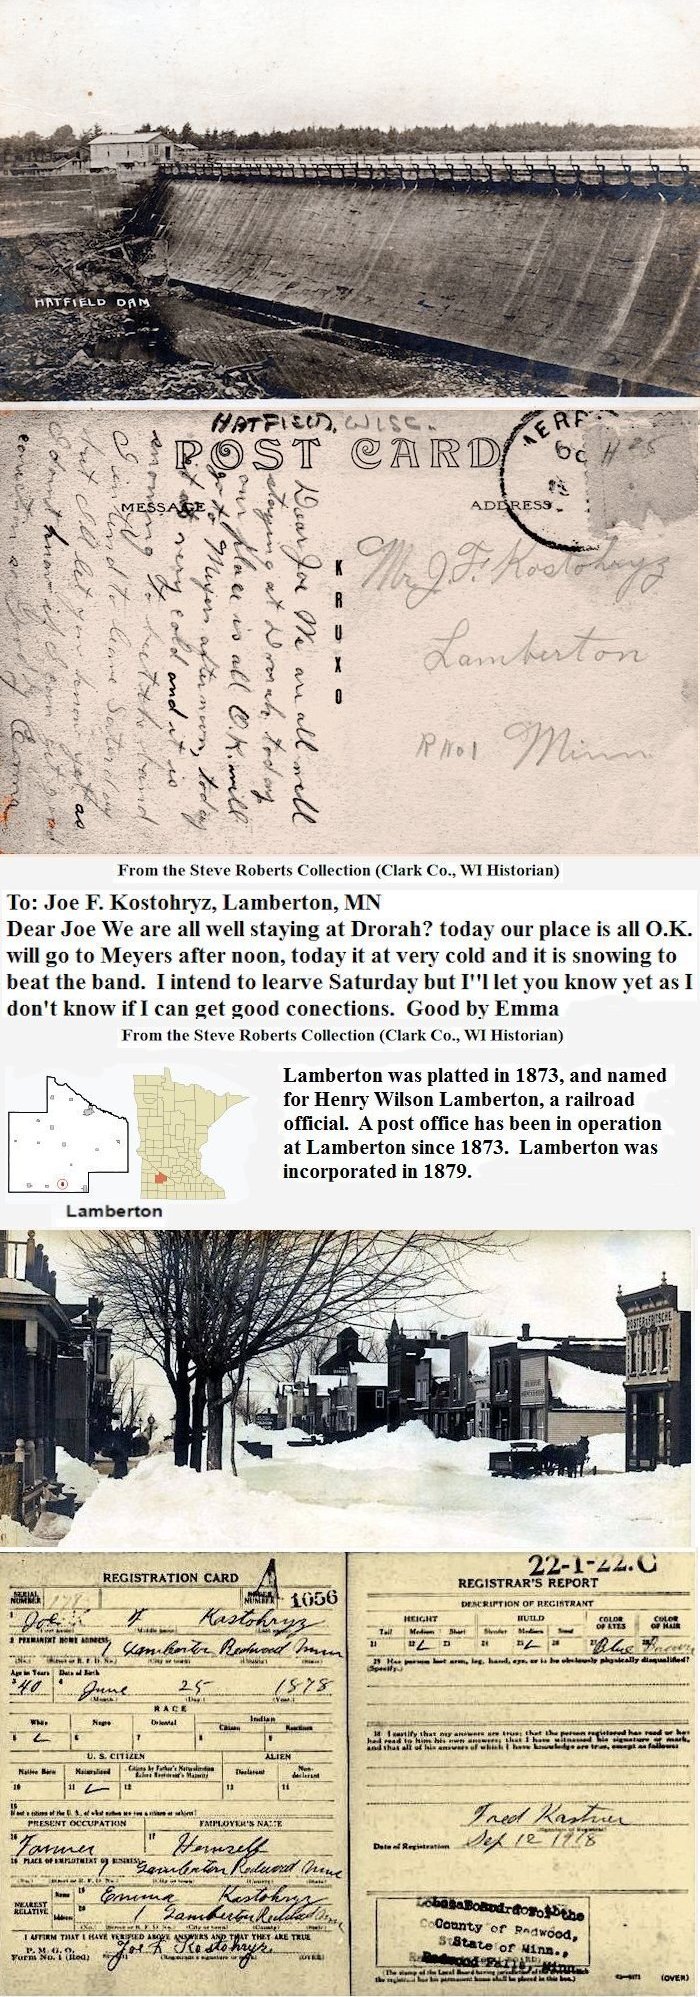 HATFIELD DAM
HATFIELD, WISC.
POST CARD
MESSAGE
ADDRESS
KRUXO
Dear Joe We are all well
staying at Dorah today
our place is all O.K. will
go to Meyers after noon, today
it at very cold and it is
snowing to beat the band
I intend to leave Saturday
but I'll let you know yet as
I don't know if I can get good
conections Good by Emma
Mr J. F. Kostohryz
Lamberton
R No 1 Minn
From the Steve Roberts Collection (Clark Co., WI Historian)
To: Joe F. Kostohryz, Lamberton, MN
Dear Joe We are all well staying at Drorah? today our place is all O.K.
will go to Meyers after noon, today it at very cold and it is snowing to
beat the band. I intend to learve Saturday but I''l let you know yet as I
don't know if I can get good conections. Good by Emma
From the Steve Roberts Collection (Clark Co., WI Historian)
Lamberton was platted in 1873, and named
for Henry Wilson Lamberton, a railroad
official. A post office has been in operation
at Lamberton since 1873. Lamberton was
incorporated in 1879.
Lamberton
REGISTRATION CARD
SERIAL NUMBER
ORDER NUMBER A 1056
1 Joe F Kastohryz
2 PERMANENT HOME ADDRESS: 1 Lamberton Redwood Minn
Age in Years Date of Birth
3 40 4 June 25 1878
(Month.) (Day.) (Year.)
RACE
White Negro Oriental Indian
Citizen
5 6 7 8 9
U. S. CITIZEN ALIEN
Native Born Naturalized Citizen by Father's Naturalization Before Registrant's Majority Declarant Non-declarant
10 11 12 13 14
15
If not a citizen of the U. S., of what nation are you a citizen or subject?
PRESENT OCCUPATION EMPLOYER'S NAME
16 Farmer 17 Himself
18 PLACE OF EMPLOYMENT OR BUSINESS: Lamberton Redwood Minn
NEAREST RELATIVE Name 19 Emma Kastohryz
Address 20 1 Lamberton Redwood Minn
I AFFIRM THAT I HAVE VERIFIED ABOVE ANSWERS AND THAT THEY ARE TRUE
P. M. G. O.
Form No. 1 (Red) Joe F Kostohryz (OVER)
22-1-22.C
REGISTRAR'S REPORT
DESCRIPTION OF REGISTRANT
HEIGHT BUILD COLOR OF EYES COLOR OF HAIR
Tall Medium Short Slender Medium Stout
21 22 23 24 25 26 27 Blue
29 Has person lost arm, leg, hand, eye, or is he obviously physically disqualified?
(Specify.)
30 I certify that my answers are true; that the person registered has read or has
had read to him his own answers; that I have witnessed his signature or mark,
and that all of his answers of which I have knowledge are true, except as follows:
Fred Kastner
Date of Registration Sep 12 1918
County of Redwood,
State of Minn.,
Redwood Falls, Minn.
(The stamp of the Local Board having jurisdiction of the area in which
the registrant has his permanent home shall be placed in this box.)
(OVER)